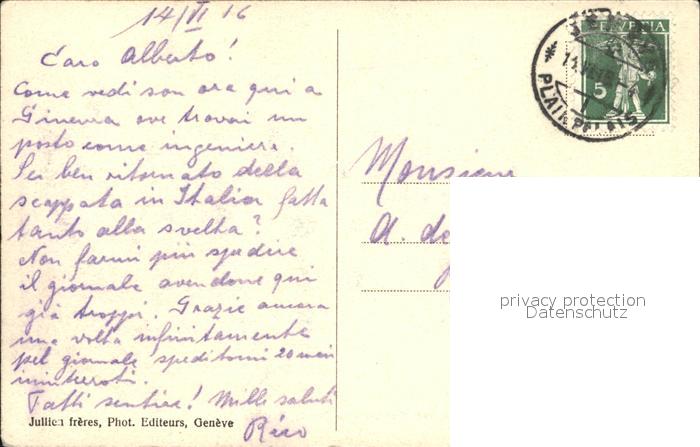 14/VI 16
Caro Alberto!
Come vedi son ora qui a
Ginevra ove trovai un
posto come ingeniere.
Sei ben ritornato della
scappata in Italia fatta
tanto alla svelta?
Non farmi più spedire
il giornale avendone qui
già troppi. Grazie ancora
una volta infinitamente
pel giornale speditomi 20
Fatti sentire! Mille saluti
Rico
Jullien frères, Phot. Editeurs, Genève
HELVETIA
5
PLAINPALAIS
Monsieur
A. de
privacy protection
Datenschutz